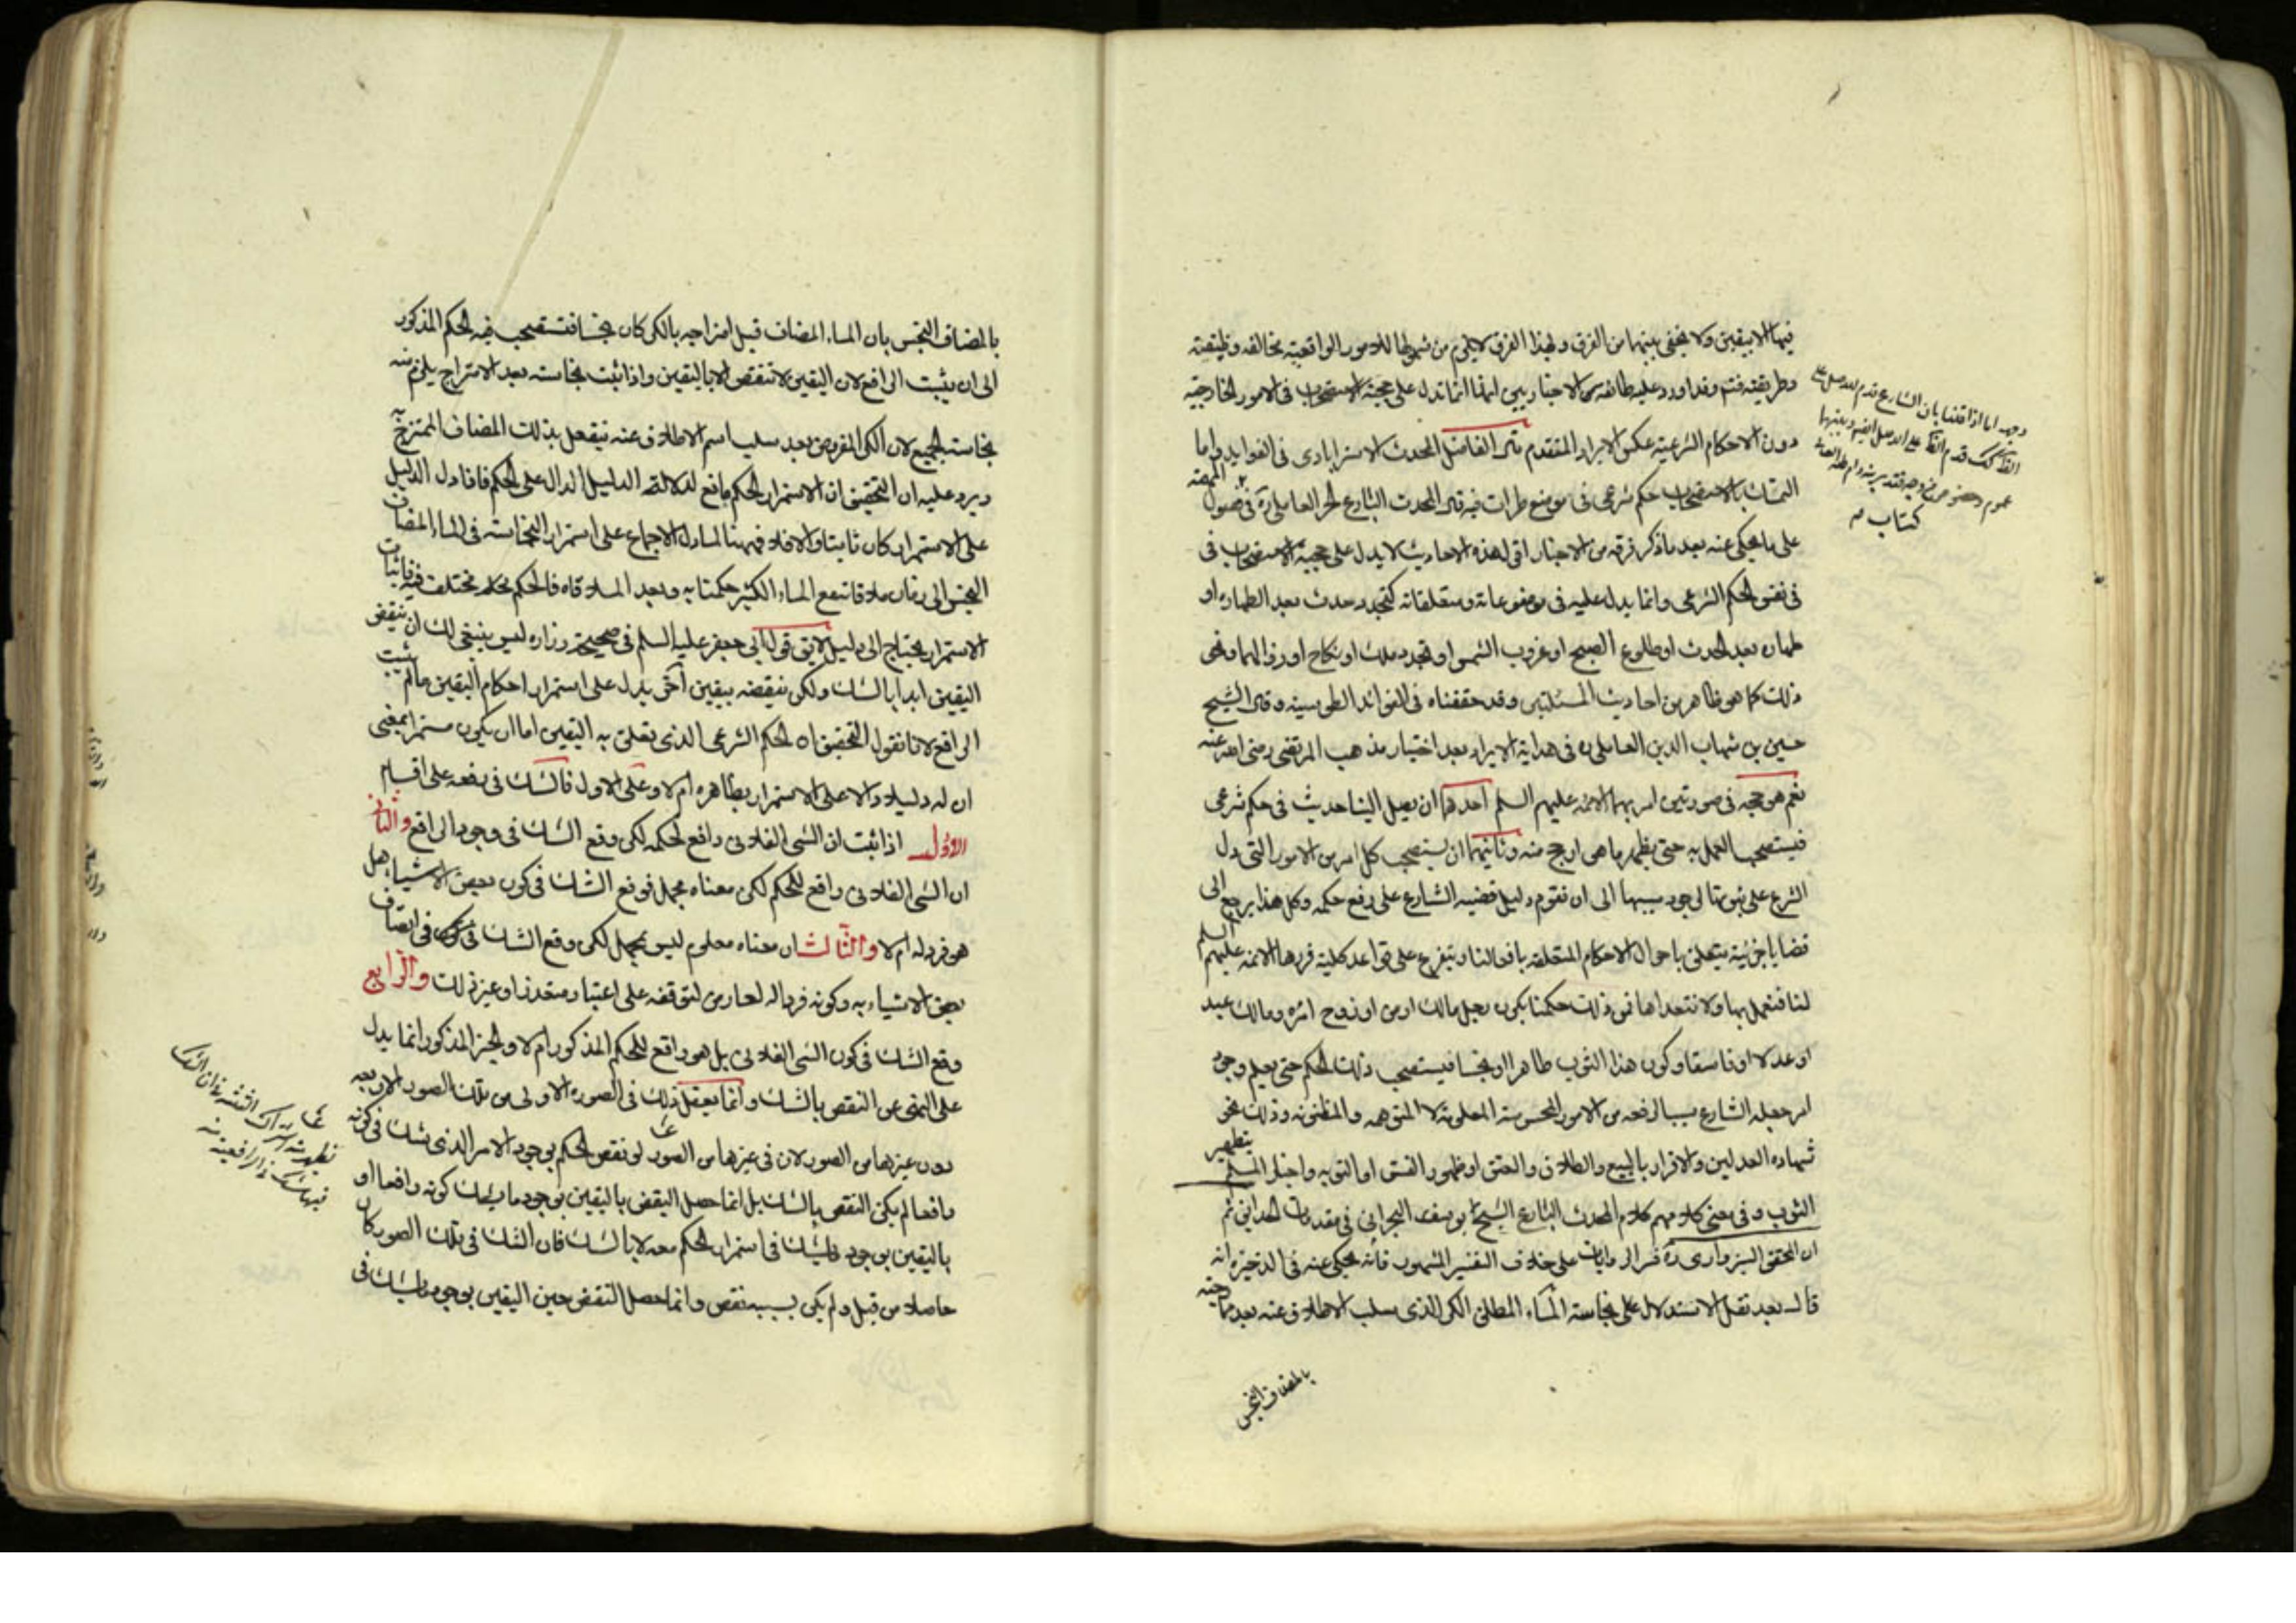 فيها الا بيقين ولا يخفى بينهما من الفرق ولهذا الفرق لا يلزم من شمولها للامور الواقعية مخالفه وظيفته
وطريقته فتم وقد اورد عليه طائفة من الاخباريين ايضا انما تدل على حجية الاستصحاب فى الامور الخارجية
دون الاحكام الشرعية عكس الايراد المتقدم قال الفاضل المحدث الاسترابادى فى الفوايد واما
التمسك بالاستصحاب حكم شرعى فى موضع طرات فيه قال المحدث البارع الحر العاملى ره فى فصول المهمة
على ما يحكى عنه بعد ما ذكر فرقه من الاخبار اقول هذه الاحاديث لا يدل على حجية الاستصحاب فى
فى نفس الحكم الشرعى وانما يدل عليه فى موضوعاته ومتعلقاته كتجدد حدث بعد الطهارة او
طهارة بعد الحدث او طلوع الصبح او غروب الشمس او تجدد ملك او نكاح او زوالهما ونحو
ذلك كما هو ظاهر من احاديث المسئلتين وقد حققناه فى الفوائد الطوسية وقال الشيخ
حسين بن شهاب الدين العاملى ره فى هداية الابرار بعد اختيار مذهب المرتضى رضى الله عنه
نعم هو حجة فى صورتين امر بهما الائمة عليهم السلم احدهما ان يصل الينا حديث فى حكم شرعى
فيستصحب العمل به حتى يظهر ما هو ارجح منه وثانيهما ان يستصحب كل امر من الامور التى دل
الشرع على ثبوتها لوجود سببها الى ان تقوم دليل قضية الشارع على رفع حكمه وكل هذا يرجع الى
قضايا جزئية يتعلق باحوال الاحكام المتعلقة بافعالنا ويتفرع على قواعد كلية قررها الائمة عليهم السلم
لنا فنعمل بها ولا نتعداها فمن ذلك حكمنا بكون رجل مالك ارض او زوج امرة ومالك عبد
او عدلا او فاسقا وكون هذا الثوب طاهرا او نجسا فيستصحب ذلك الحكم حتى يعلم وجود
امر جعله الشارع سببا لرفعه من الامور المحسوسة المعلومة لا المتوهمه والمظنونة وذلك نحو
شهادة العدلين والاقرار بالبيع والطلاق والعتق او ظهور الفسق او التوبة واخبار المسلم بتطهير
الثوب وفى معنى كلامهم كلام المحدث البارع الشيخ يوسف البحرانى فى مقدمات الحدايق ثم
ان المحقق السبزوارى ره فسر الروايات على خلاف التفسير المشهور فانه يحكى عنه فى الذخيرة انه
قال بعد نقل الاستدلال على نجاسة الماء المطلق الكر الذى سلب الاطلاق عنه بعد مازجته
بالمضاف النجس
كتاب منه
بالمضاف النجس بان الماء المضاف قبل امتزاجه بالكر كان نجسا فتستصحب فيه الحكم المذكور
الى ان يثبت الرافع لان اليقين لا تنتقض الا باليقين واذا ثبت نجاسته بعد الامتزاج يلزم منه
نجاسة الجميع لان الكر المفروض بعد سلب اسم الاطلاق عنه ينفعل بذلك المضاف الممتزج به
ويرد عليه ان التحقيق ان الاستمرار الحكم تابع لدلالة الدليل الدال على الحكم فاذا دل الدليل
على الاستمرار كان ثابتا والا فلا فيهنا لما دل الاجماع على استمرار النجاسة فى الماء المضاف
النجس الى زمان ملاقاته مع الماء الكثير حكمنا به وبعد الملاقاه فالحكم محله مختلف فيه فاثبات
الاستمرار يحتاج الى دليل لا يق قول ابى جعفر عليه السلم فى صحيحة زراره ليس ينبغى لك ان تنقض
اليقين ابدا بالشك ولكن تنقضه بيقين آخر يدل على استمرار احكام اليقين ما لم يثبت
الرافع لانا نقول التحقيق ان الحكم الشرعى الذى تعلق به اليقين اما ان يكون مستمرا بمعنى
ان له دليلا دالا على الاستمرار بظاهره ام لا وعلى الاول فالشك فى رفعه على اقسام
الاول اذا ثبت ان الشى الفلانى رافع لحكمه لكن وقع الشك فى وجود الرافع والثانى
ان الشى الفلانى رافع للحكم لكن معناه مجمل فوقع الشك فى كون بعض الاشياء هل
هو فرد له ام لا والثالث ان معناه معلوم ليس بمجمل لكن وقع الشك فى اتصاف
بعض الاشياء به وكونه فردا له لعارض لتوقفه على اعتبار متعذر او غير ذلك والرابع
وقع الشك فى كون الشى الفلانى بل هو رافع للحكم المذكور ام لا والخبر المذكور انما يدل
على النهى عن النقض بالشك وانما يعقل ذلك فى الصورة الاولى من تلك الصور الاربعه
دون غيرها من الصور لان فى غيرها من الصور لو نقض الحكم بوجود الامر الذى شك فى كونه
رافعا لم يكن النقض بالشك بل انما حصل النقض باليقين بوجود ما شك كونه رافعا او
باليقين بوجود ما شك فى استمرار الحكم معه لا بالشك فان الشك فى تلك الصور كان
حاصلا من قبل ولم يكن بسببه نقض وانما حصل النقض حين اليقين بوجود ما شك فى